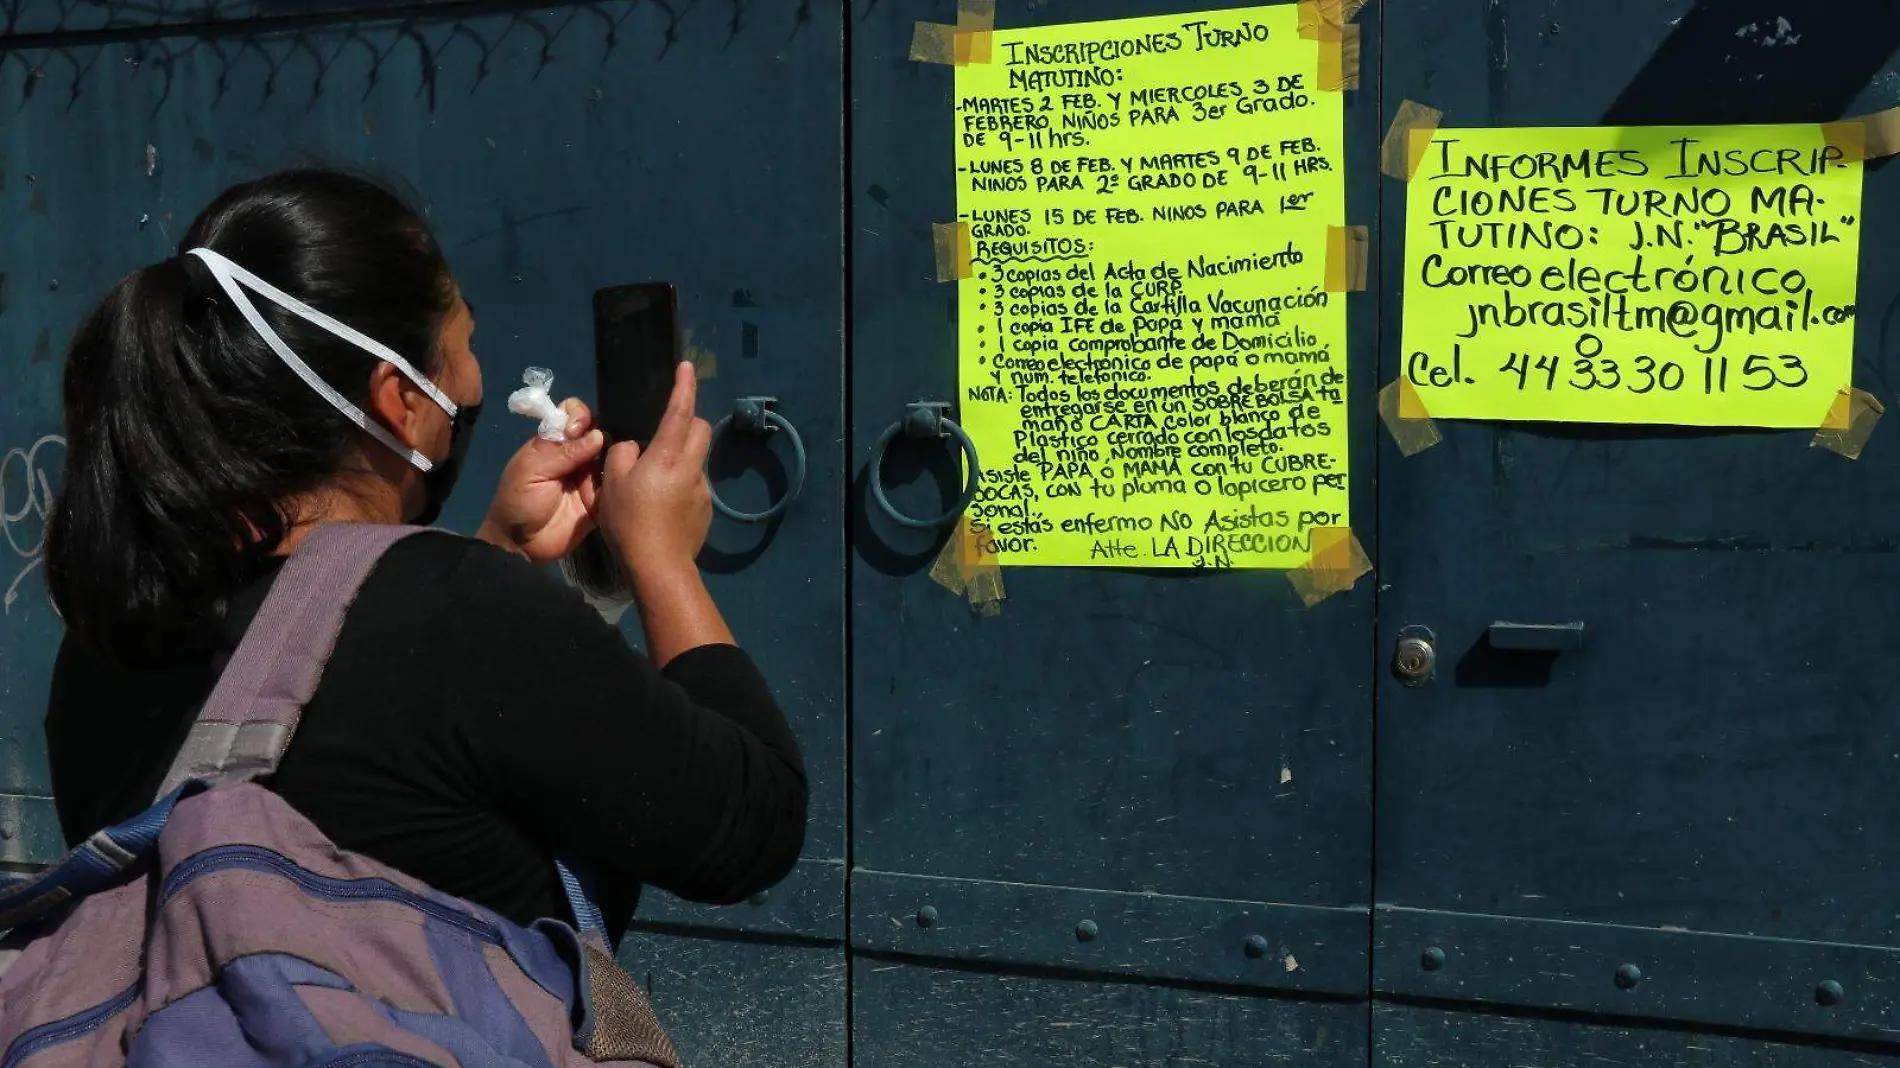 INSCRIPCIONES TURNO
MATUTINO:
-MARTES 2 FEB. Y MIERCOLES 3 DE
FEBRERO NIÑOS PARA 3er Grado.
DE 9-11 hrs.
-LUNES 8 DE FEB. Y MARTES 9 DE FEB.
NINOS PARA 2º GRADO DE 9-11 HRS.
-LUNES 15 DE FEB. NINOS PARA 1er
GRADO.
REQUISITOS:
• 3 copias del Acta de Nacimiento
• 3 copias de la CURP.
• 3 copias de la Cartilla Vacunación
• 1 copia IFE de papa y mamá
• 1 copia comprobante de Domicilio.
• Correo electrónico de papá o mamá
y num. telefonico.
NOTA: Todos los documentos deberán de
entregarse en un SOBRE BOLSA ta
maño CARTA color blanco de
Plastico cerrado con los datos
del niño, Nombre completo.
Asiste PAPA ó MAMÁ con tu CUBRE-
BOCAS, CON tu pluma o lapicero per
sonal.
Si estás enfermo NO Asistas por
favor. Atte. LA DIRECCION
J.N.
INFORMES INSCRIP-
CIONES TURNO MA-
TUTINO: J.N. "BRASIL"
Correo electrónico
jnbrasiltm@gmail.com
O
Cel. 44 33 30 11 53